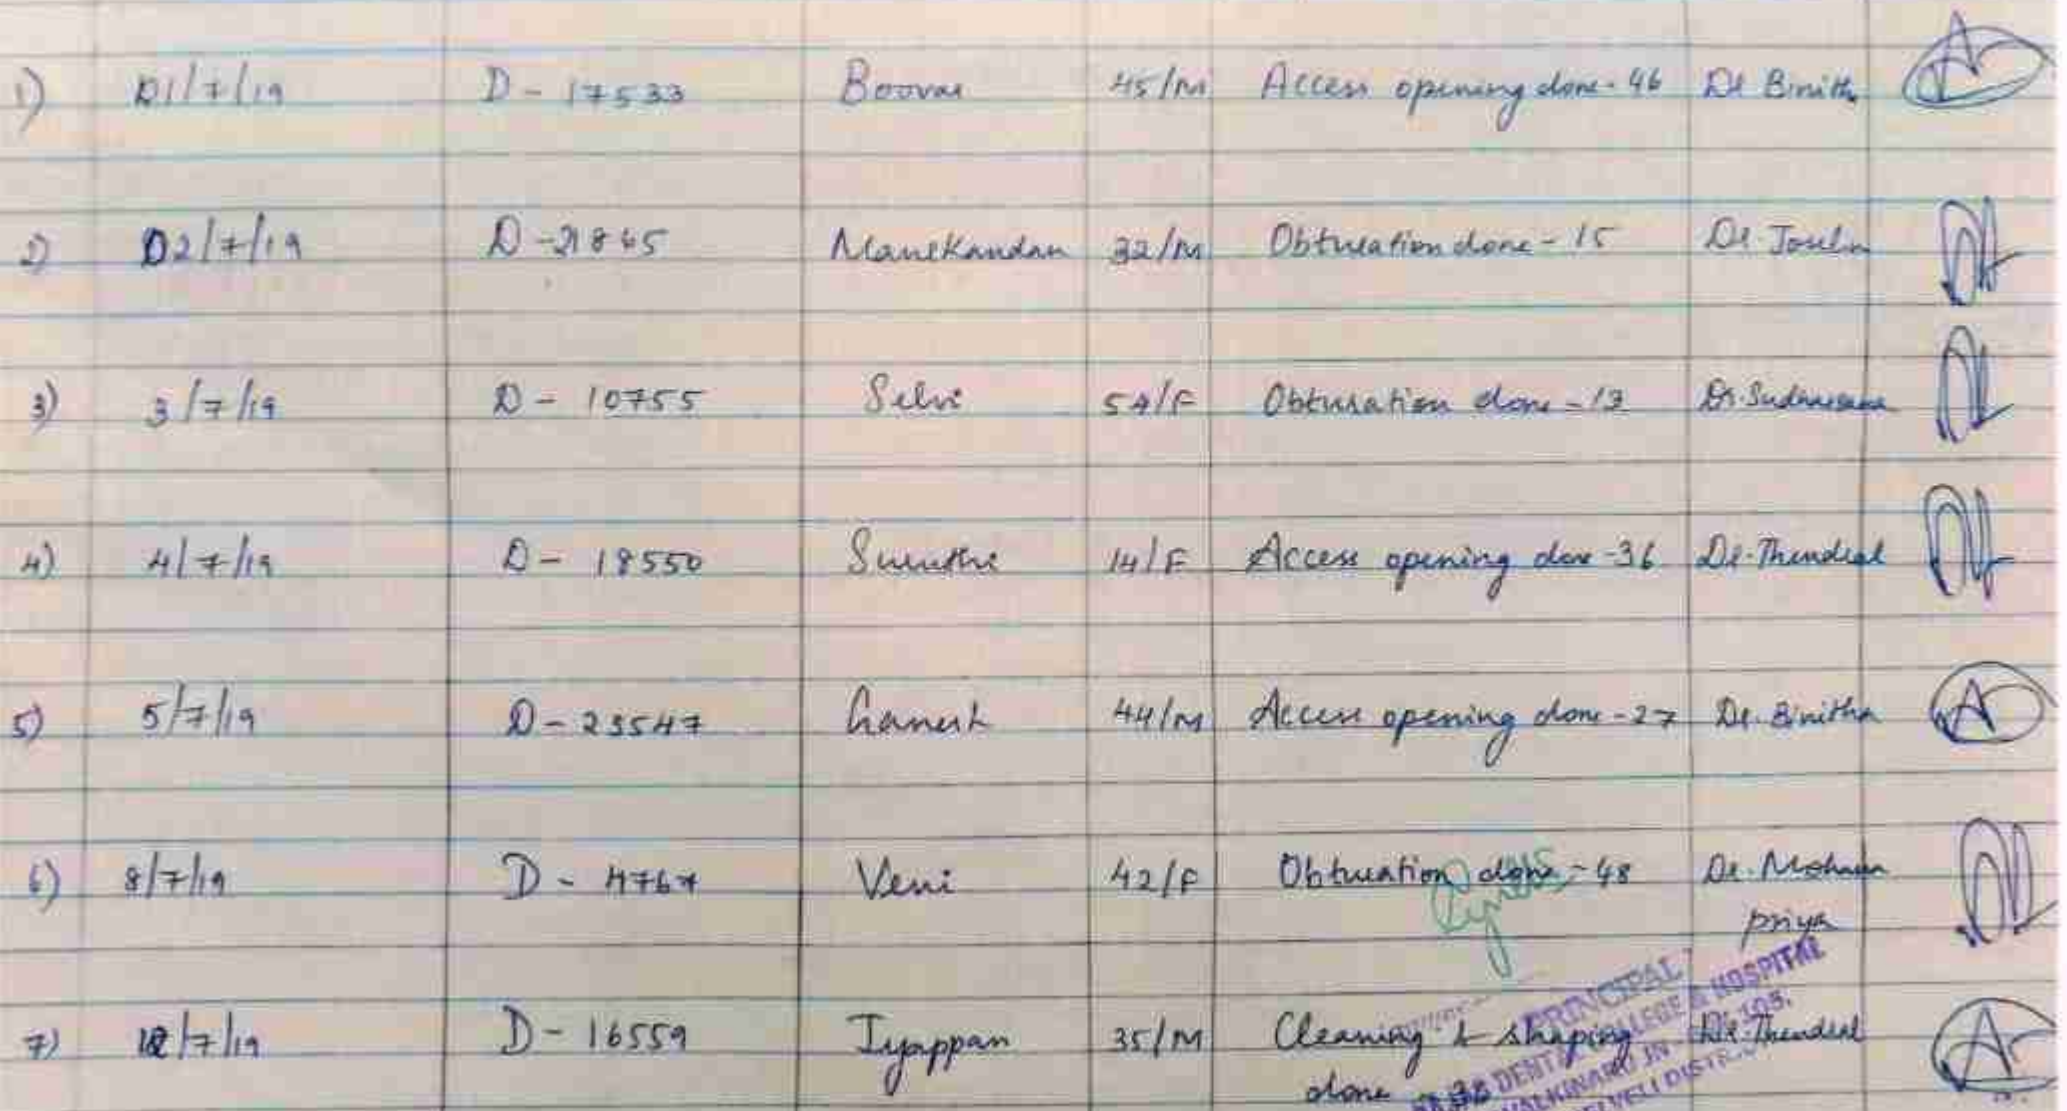 1) 01/7/19 D - 17533 Boovar 45/M Access opening done - 46 Dr Binitha
2) 02/7/19 D - 21865 Manikandan 32/M Obturation done - 15 Dr. Joselin
3) 3/7/19 D - 10755 Selvi 54/F Obturation done - 13
4) 4/7/19 D - 18550 Suruthi 14/F Access opening done - 36 Dr. Thendral
5) 5/7/19 D - 23547 Ganesh 44/M Access opening done - 27 Dr. Binitha
6) 8/7/19 D - 4767 Veni 42/F Obturation done - 48 Dr. Mohana
priya
7) /7/19 D - 16559 Iyappan 35/M Cleaning & shaping Dr. Thendral
done
PRINCIPAL
DENTAL COLLEGE & HOSPITAL